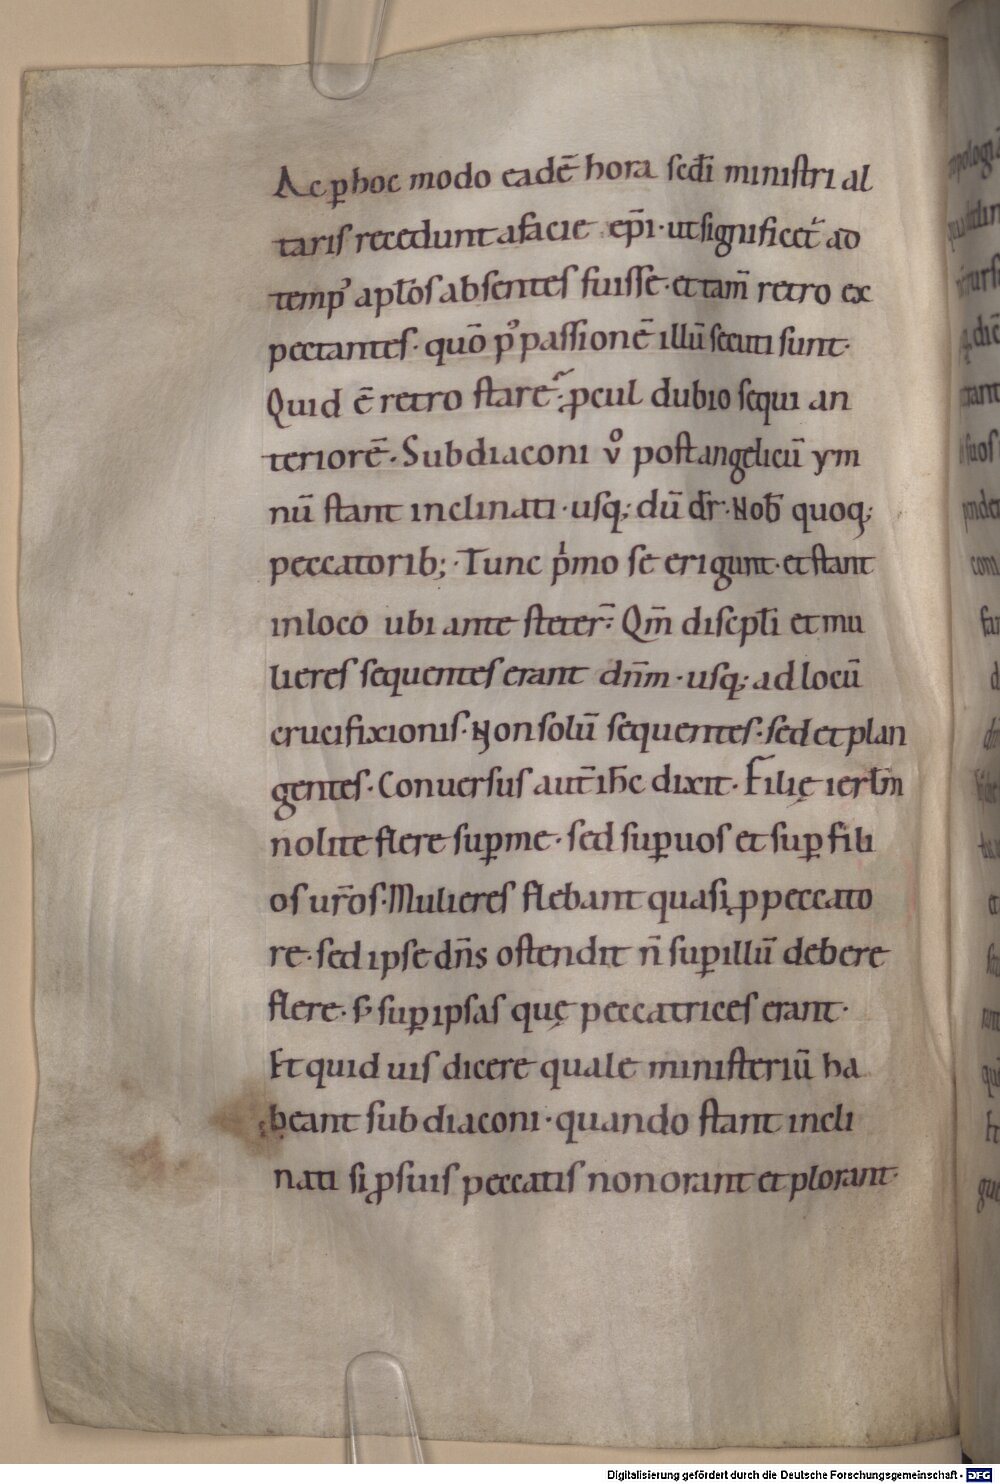 Ac ꝑ hoc modo eadē hora scd̄i ministri al
taris recedunt a facie ep̄i · ut significet᷑ ad
tempꝰ apl̄os absentes fuisse · et tam̄ retro ex
pectantes · quō pꝰ passionē illū secuti sunt ·
Quid ē retro stare? ꝓcul dubio sequi an
teriorē · Subdiaconi vͦ post angelicū ym
nū stant inclinati · usq; dū dr̄ · Nob̄ quoq;
peccatorib; · Tunc pͥmo se erigunt · et stant
in loco ubi ante steter̄ · Qm̄ discpl̄i et mu
lieres sequentes erant dn̄m · usq; ad locū
crucifixionis · Non solū sequentes · sed et plan
gentes · Conuersus aut̄ ih̄c dixit · Filię ierl̄m
nolite flere suꝑ me · sed suꝑ uos et suꝑ fili
os ur̄os · Mulieres flebant quasi ꝓ peccato
re · sed ipse dn̄s ostendit n̄ suꝑ illū debere
flere · s; suꝑ ipsas quę peccatrices erant ·
Et quid uis dicere quale ministeriū ha
beant subdiaconi · quando stant incli
nati si ꝓ suis peccatis non orant et plorant ·
Digitalisierung gefördert durch die Deutsche Forschungsgemeinschaft - DFG